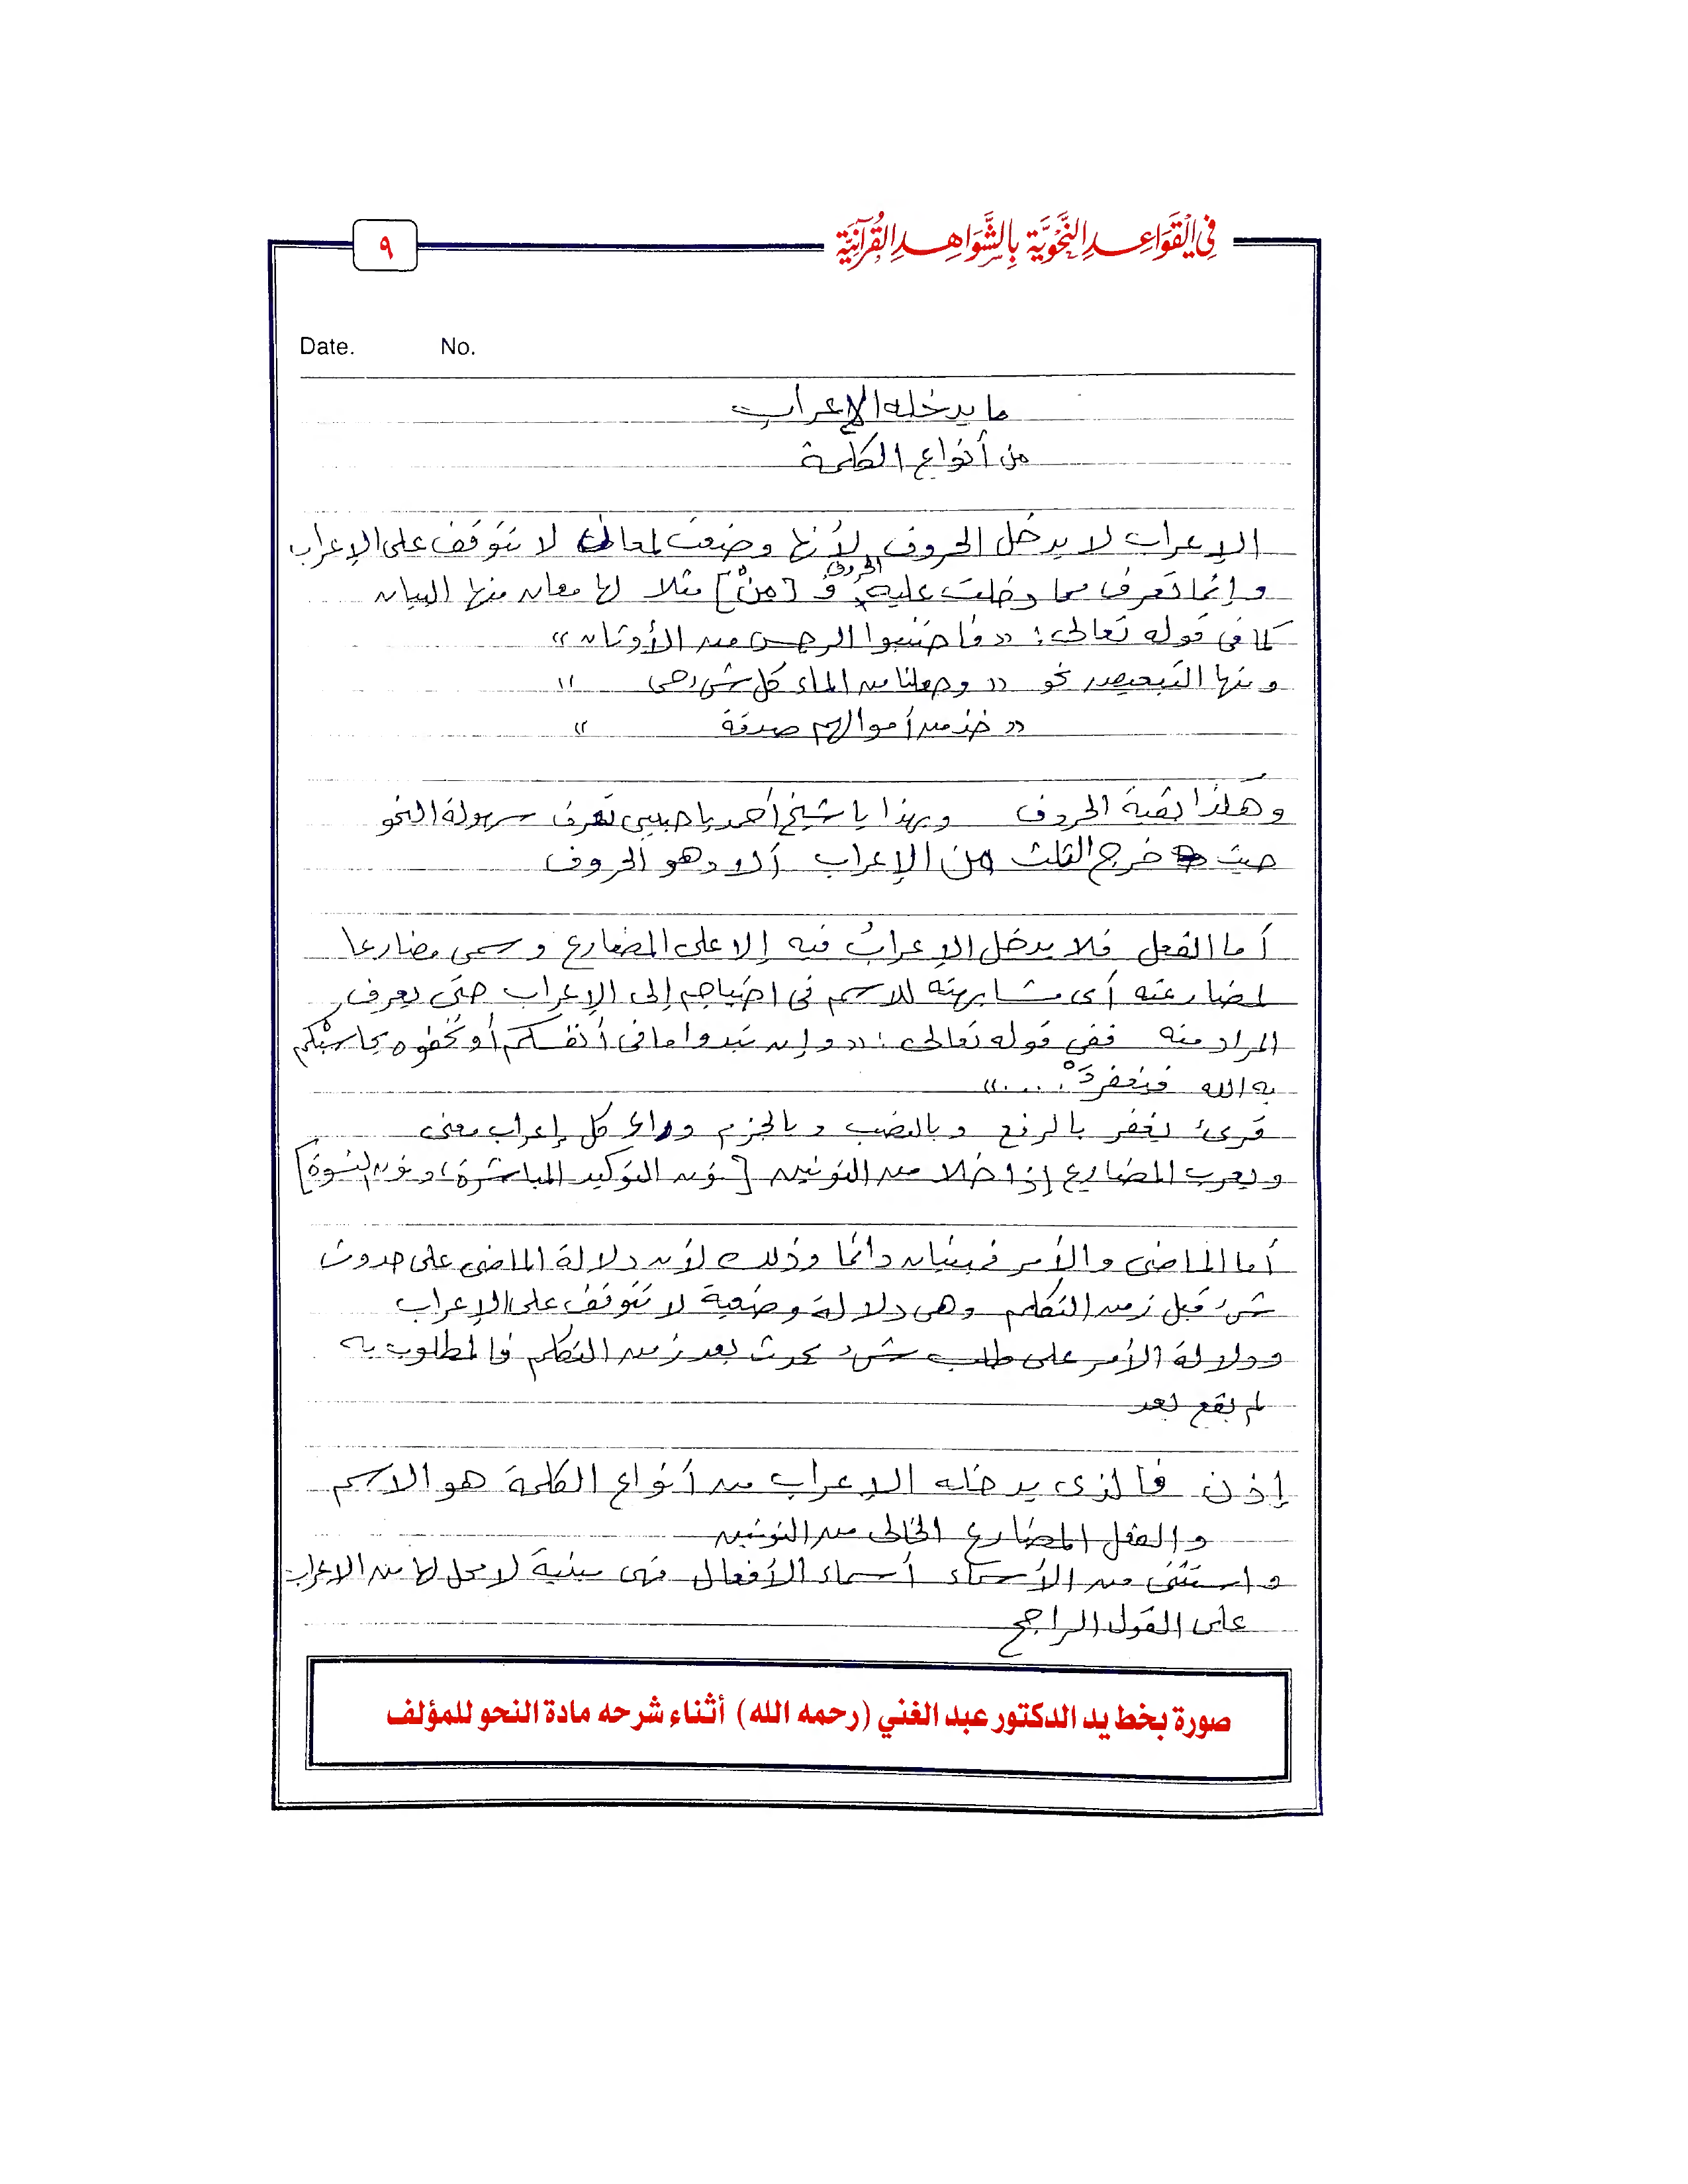 في القواعد النحوية بالشواهد القرآنية
٩
Date. No.
ما يدخله الإعراب
من أنواع الكلمة
الإعراب لا يدخل الحروف لأنها وضعت لمعان لا تتوقف على الإعراب
وإنما تعرف مما دخلت عليه الحروف فـ [مِنْ] مثلا لها معان منها البيان
كما فى قوله تعالى: «فاجتنبوا الرجس من الأوثان»
ومنها التبعيض نحو «وجعلنا من الماء كل شىء حى»
«خذ من أموالهم صدقة»
وهكذا بقية الحروف وبهذا يا شيخ أحمد يا حبيبى تعرف سهولة النحو
حيث خرج الثلث من الإعراب ألا وهو الحروف
أما الفعل فلا يدخل الإعرابُ فيه إلا على المضارع وسمى مضارعا
لمضارعته أى مشابهته للاسم فى احتياجهم إلى الإعراب حتى يعرف
المراد منه ففى قوله تعالى: «وإن تبدوا ما فى أنفسكم أو تخفوه يحاسبْكم
به الله فيغفر....»
قرىء يغفر بالرفع وبالنصب وبالجزم وراء كل إعراب معنى
ويعرب المضارع إذا خلا من النونين [نون التوكيد المباشرة، ونون النسوة]
أما الماضى والأمر فمبنيان دائما وذلك لأن دلالة الماضى على حدوث
شىء قبل زمن التكلم وهى دلالة وضعية لا تتوقف على الإعراب
ودلالة الأمر على طلب شىء يحدث بعد زمن التكلم فالمطلوب به
لم يقع بعد
إذن فالذى يدخله الإعراب من أنواع الكلمة هو الاسم
والفعل المضارع الخالى من النونين
واستثنى من الأسماء أسماء الأفعال فهى مبنية لا محل لها من الإعراب
على القول الراجح
صورة بخط يد الدكتور عبد الغني (رحمه الله) أثناء شرحه مادة النحو للمؤلف